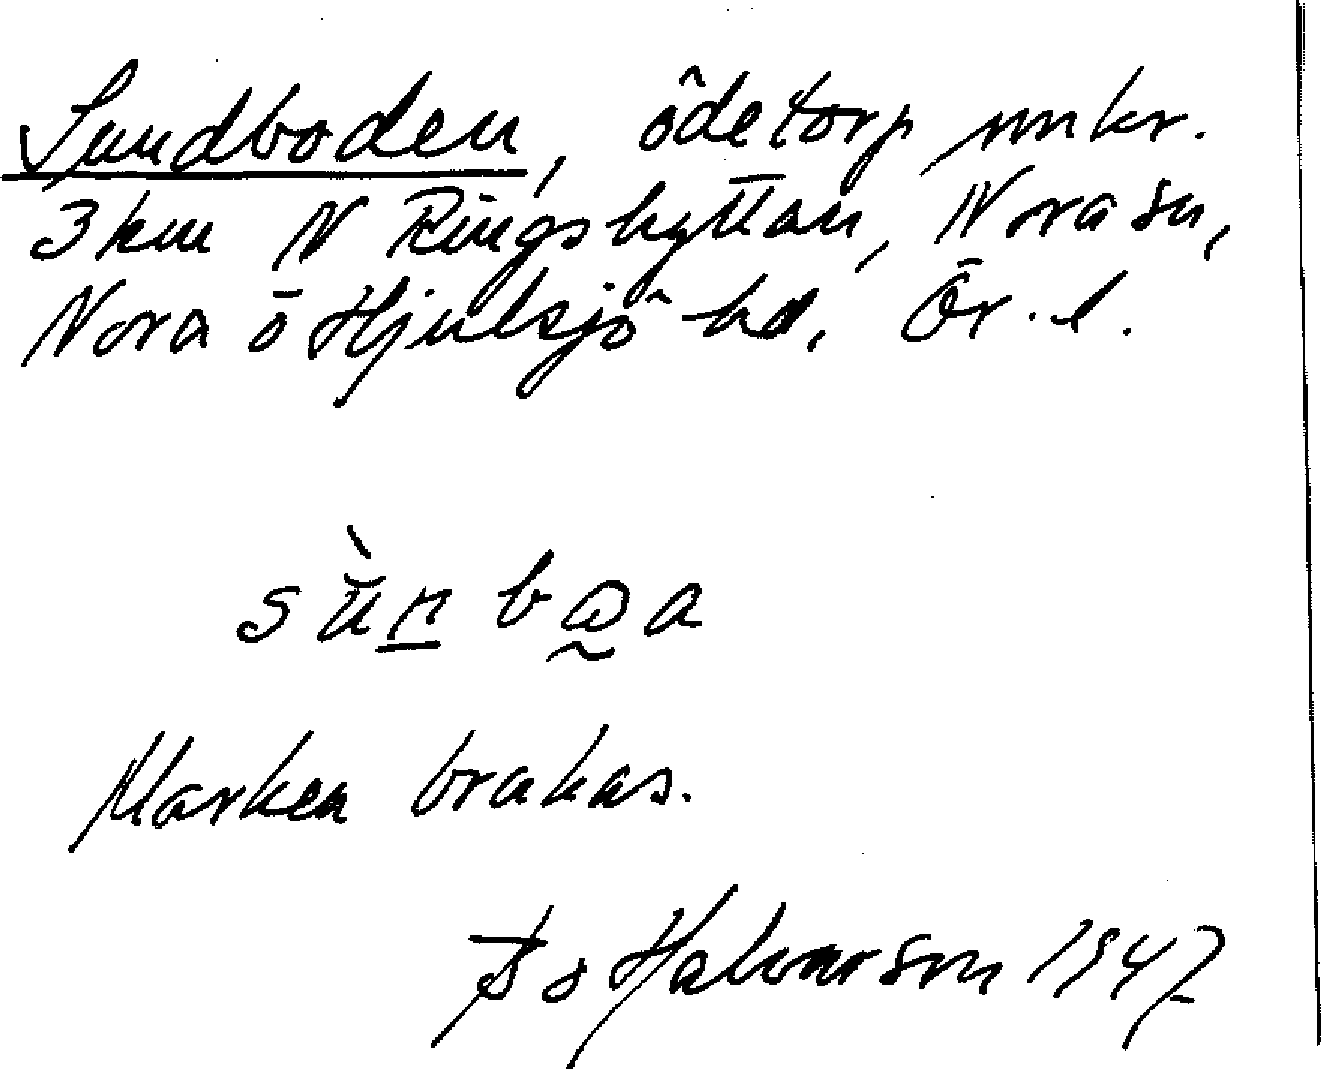 Sundboden, ödetorp omkr.
3 km N Ringshyttan, Nora sn,
Nora o Hjulsjö hd, Ör. l.
Marken brakas.
Bo Halvarson 1947